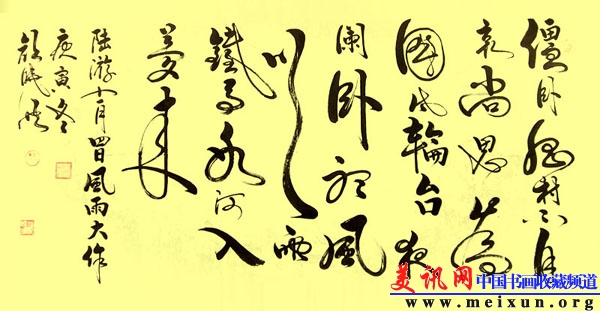 僵卧孤村不自
哀尚思為
國戍輪台夜
闌卧聽風
吹雨
鐵馬冰河入
夢來
陸游十一月四日風雨大作
庚寅冬
美讯网 中国书画收藏频道
www.meixun.org